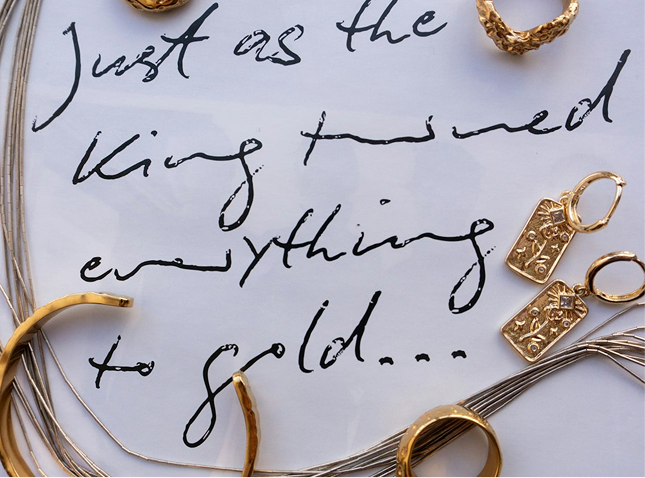 Just as the
King turned
everything
to gold...